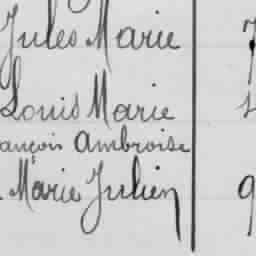 Jules Marie 7
Louis Marie
ançois Ambroise
Marie Julien 9